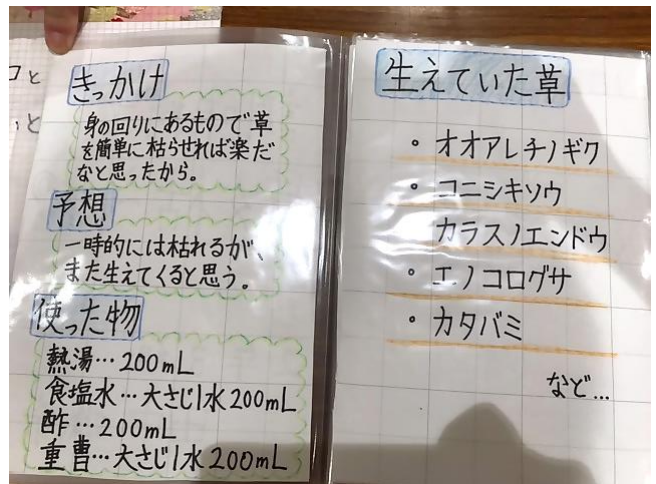 コと
いと
きっかけ
身の回りにあるもので草
を簡単に枯らせれば楽だ
なと思ったから。
予想
一時的には枯れるが、
また生えてくると思う。
使った物
熱湯…200mL
食塩水…大さじ1水200mL
酢…200mL
重曹…大さじ1水200mL
生えていた草
・オオアレチノギク
・コニシキソウ
カラスノエンドウ
・エノコログサ
・カタバミ
など…